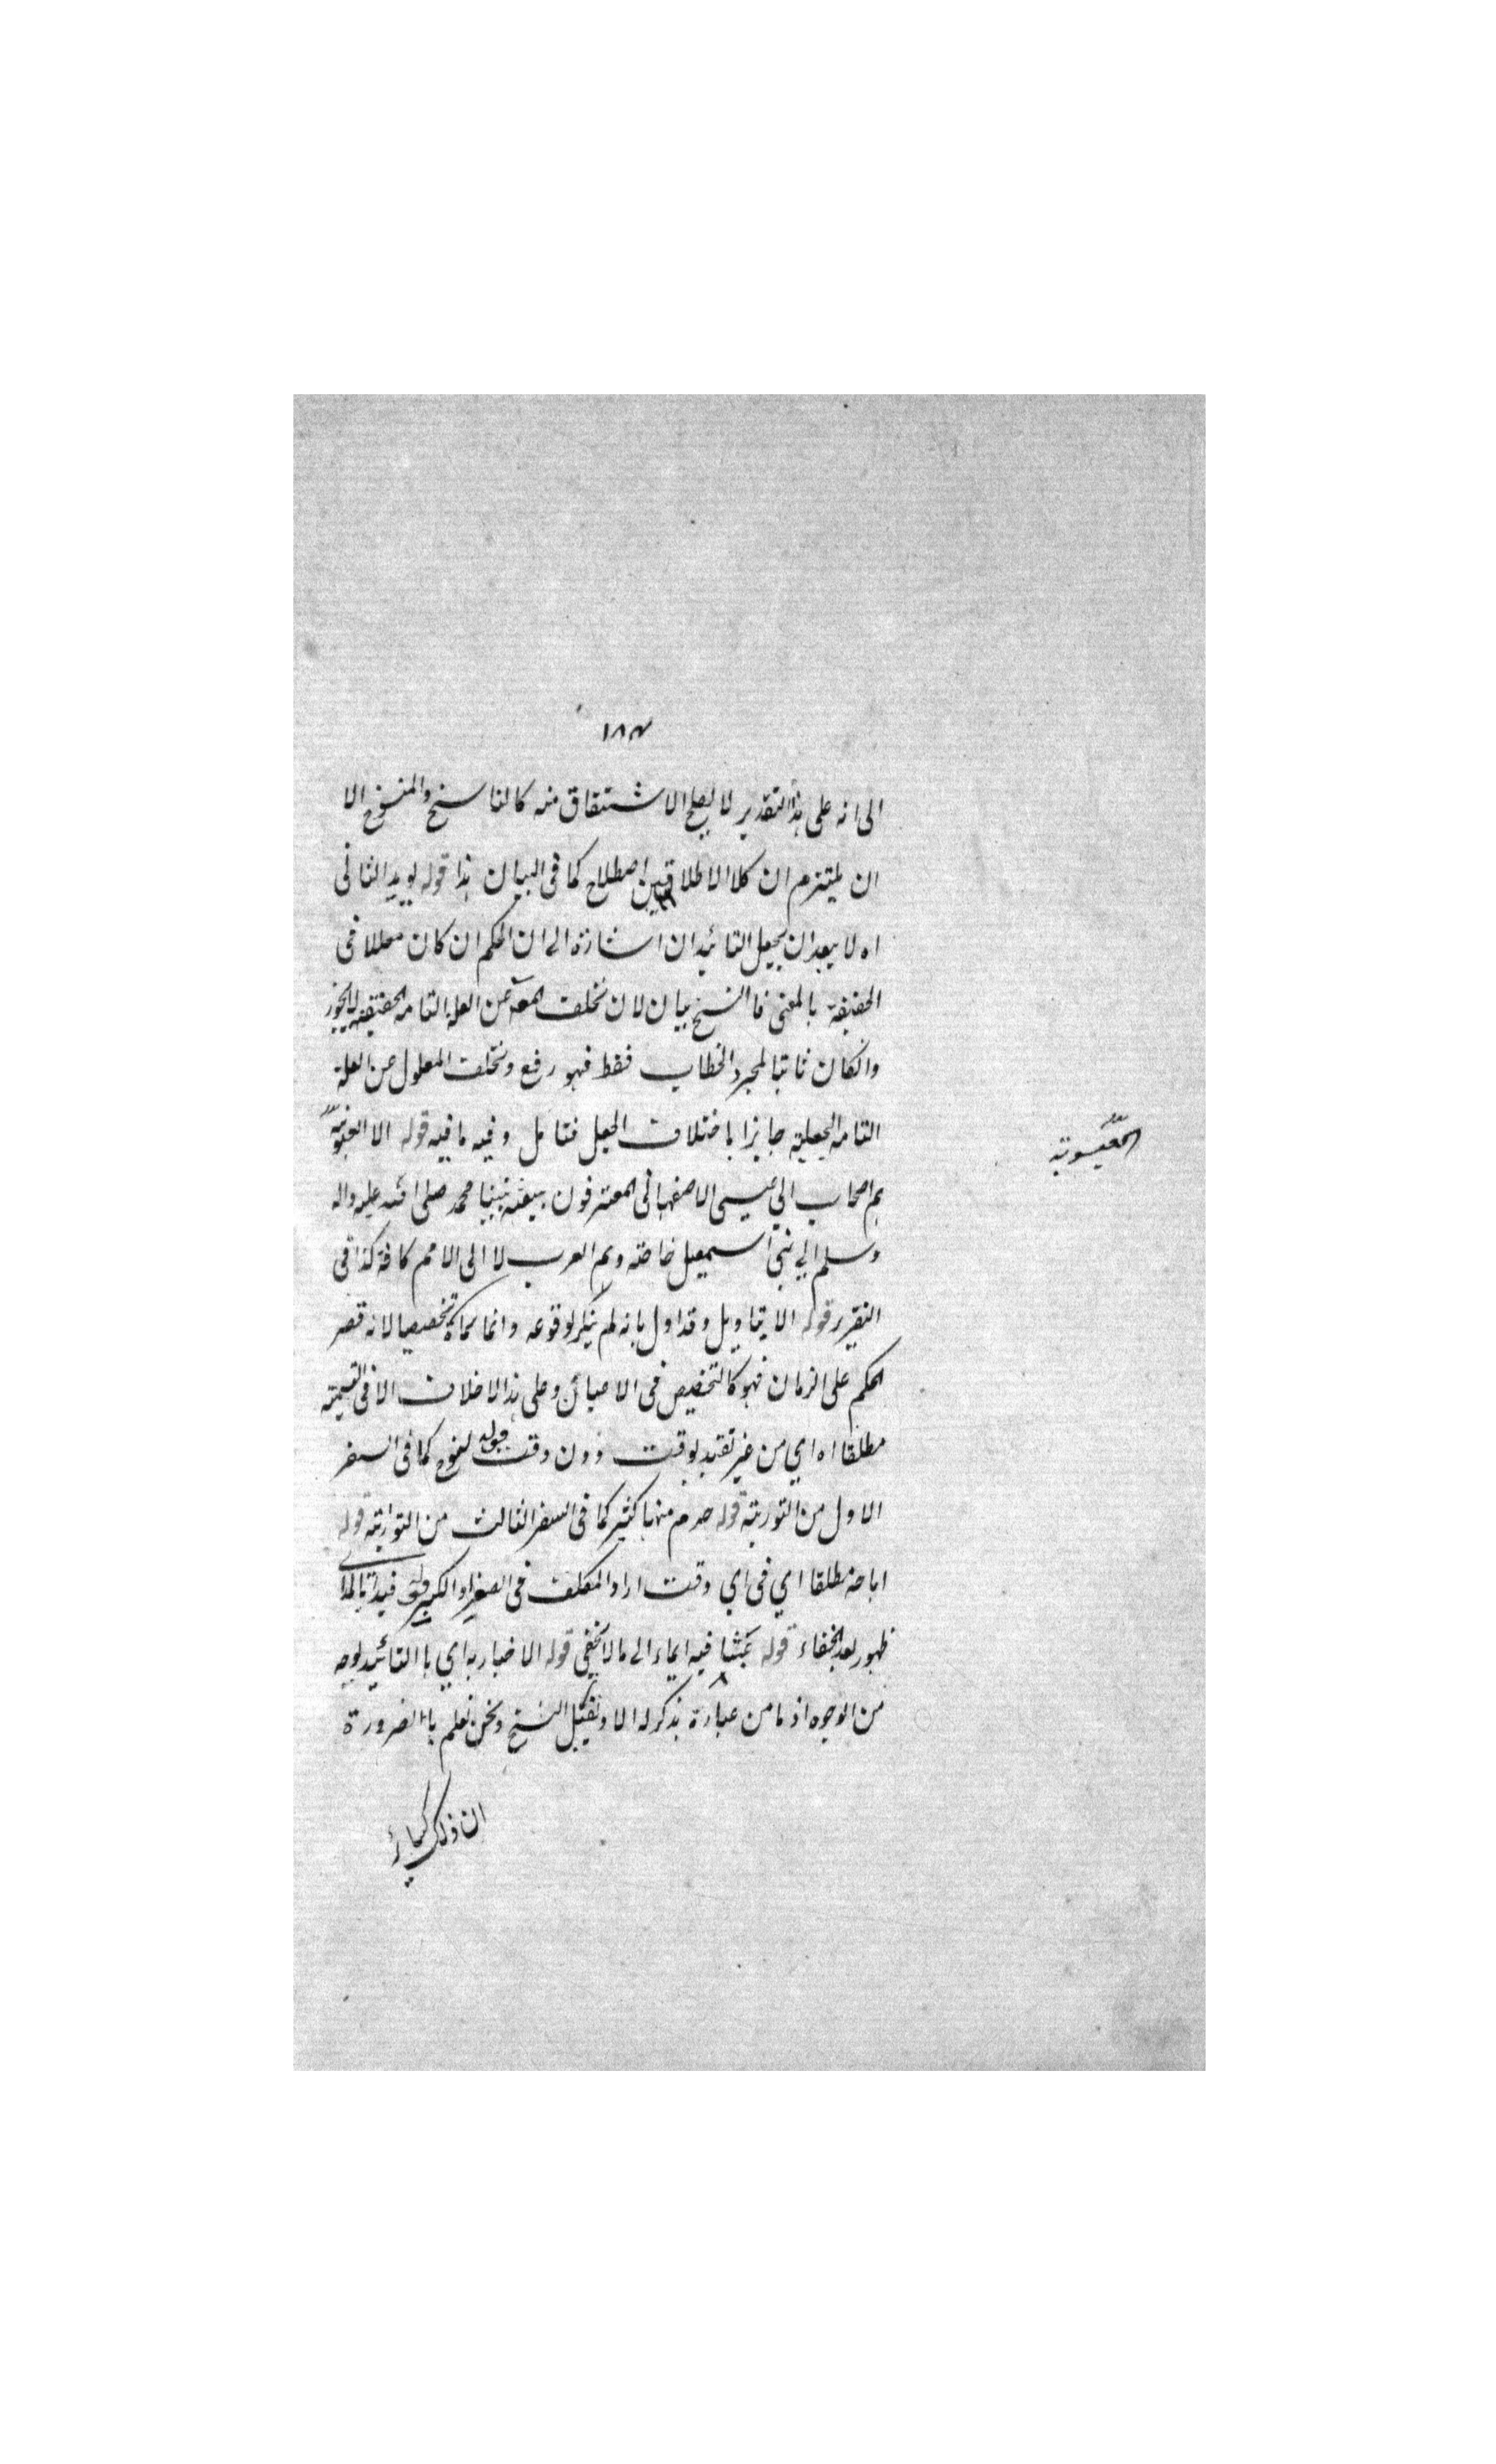 ١٨٣
الى انه على هذا التقدير لا يصلح الاشتقاق منه كالناسخ والمنسوخ الا
ان يلتزم ان كلا الاطلاقين اصطلاح كما فى البيان هذا قوله يويد الثانى
اه لا يبعد ان يجعل التائيد ان اشارة الى ان الحكم ان كان معللا فى
الحقيقة بالمعنى فالنسخ بيان لان تخلف المعة عن العلة التامة الحقيقية لايجوز
وانكان ثابتا لمجرد الخطاب فقط فهو رفع وتخلف المعلول عن العلة
التامة الجعلية جايزا باختلاف الجعل فتامل وفيه ما فيه قوله الا العيسوية
هم اصحاب ابي عيسى الاصفهانى المعترفون ببعثة نبينا محمد صلى الله عليه واله
وسلم الي بني اسمعيل خاصة وهم العرب لا الى الامم كافة كذا فى
التقرير قوله الا بتاويل وقد اول بانه لم ينكر لوقوعه وانما سماه تخصيصا لانه قصر
الحكم على الزمان فهو كالتخصيص فى الاعيان وعلى هذا لا خلاف الا فى التسمية
مطلقا اه اي من غير تقيد بوقت دون وقت قوله لنوح كما فى السفر
الاول من التورية قوله حرم منها كثير كما فى السفر الثالث من التوراية قوله
اباحة مطلقا اي فى اي وقت اراد المكلف فى الصغر او الكبر قوله فبداء بالمد اى
ظهور بعد الخفاء قوله عبثا فيه ايماء الى ما لا يخفي قوله الاخبار به اي باالتائيد بوجه
من الوجوه اذ ما من عبارة يذكر له الا وتقبل النسخ ونحن نعلم باالضرورة
ان ذلك
العيسوية